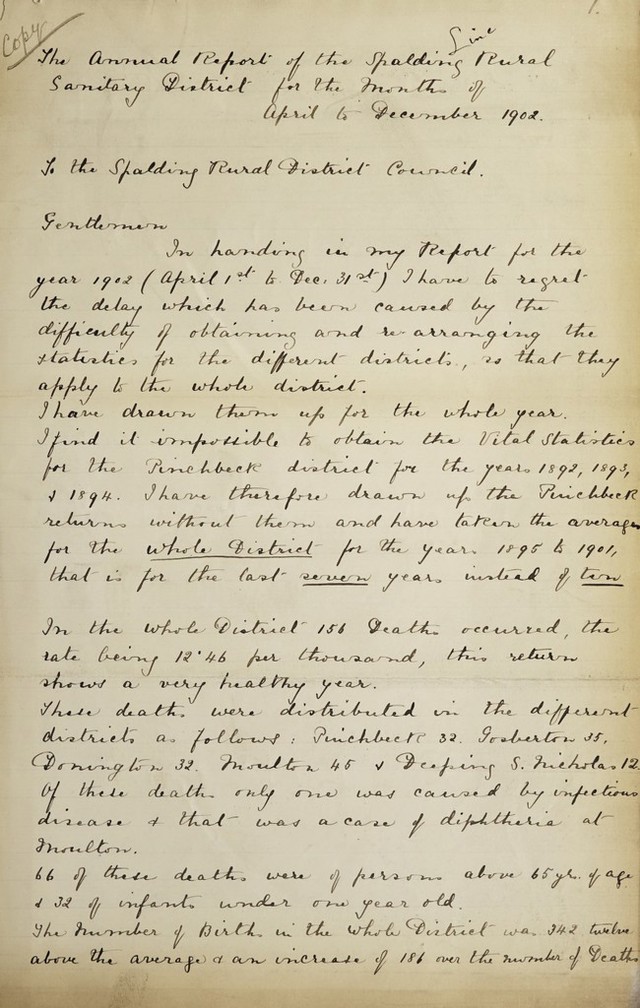 Copy
1.
The Annual Report of the Spalding Rural
Sanitary District for the Months of
April to December 1902.
To the Spalding Rural District Council.
Gentlemen
In handing in my Report for the
year 1902 (April 1st to Dec. 31st) I have to regret
the delay which has been caused by the
difficulty of obtaining and re-arranging the
statistics for the different districts, so that they
apply to the whole district.
I have drawn them up for the whole year.
I find it impossible to obtain the Vital Statistics
for the Pinchbeck district for the years 1892, 1893,
& 1894. I have therefore drawn up the Pinchbeck
returns without them and have taken the averages
for the whole District for the years 1895 to 1901,
that is for the last seven years instead of ten
In the whole District 156 Deaths occurred, the
rate being 12.46 per thousand, this return
shows a very healthy year.
These deaths were distributed in the different
districts as follows: Pinchbeck 32. Gosberton 35,
Donington 32. Moulton 45 & Deeping S. Nicholas 12.
Of these deaths only one was caused by infectious
disease & that was a case of diphtheria at
Moulton.
66 of these deaths were of persons above 65 yrs. of age
& 32 of infants under one year old.
The Number of Births in the whole District was 342 twelve
above the average & an increase of 186 over the number of Deaths